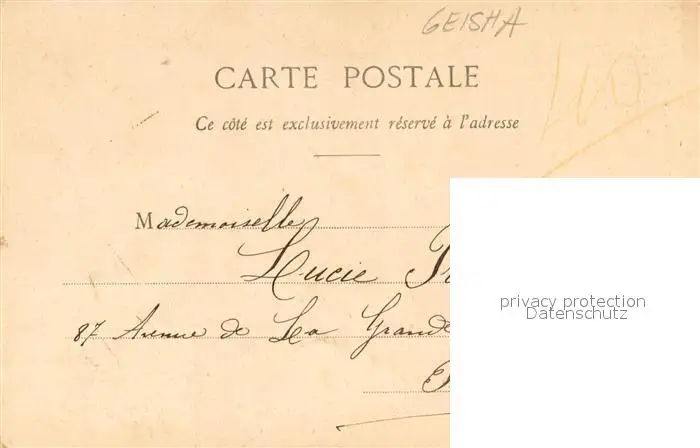 GEISHA
CARTE POSTALE
Ce côté est exclusivement réservé à l'adresse
Mademoiselle
Lucie
87 Avenue de La Grande
privacy protection
Datenschutz